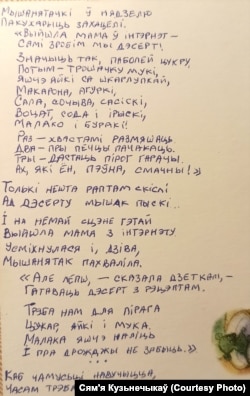 Мышанятачкі ў нядзелю
Пакухарыць захацелі.
«Выйшла мама ў інтэрнэт –
Самі зробім мы дэсерт!
Значыць так, паболей цукру,
Потым – трошачку мукі,
Яшчэ яйкі са шкарлупкай,
Макарона, агуркі,
Сала,
сасіскі,
Воцат, сода і ірыскі,
Малако і буракі!
Раз – хвастамі размяшаць.
Два – пры печцы пачакаць.
Тры – дастаць пірог гарачы.
Ах, які ён, пэўна, смачны!»
Толькі нешта раптам скіслі
Ад дэсерту мышак пыскі...
І на немай сцэне гэтай
Выйшла мама з інтэрнэту.
Усміхнулася і, дзіва,
Мышанятак пахваліла.
«Але лепш, – сказала дзеткам, –
Гатаваць дэсерт з рэцэптам.
Трэба нам для пірага
Цукар, яйкі і мука.
Малака яшчэ наліць
І пра дрожджы не забыць.»
Каб чамусьці навучыцца,
Часам трэба
Сям'я Кузьнечыкаў (Courtesy Photo)